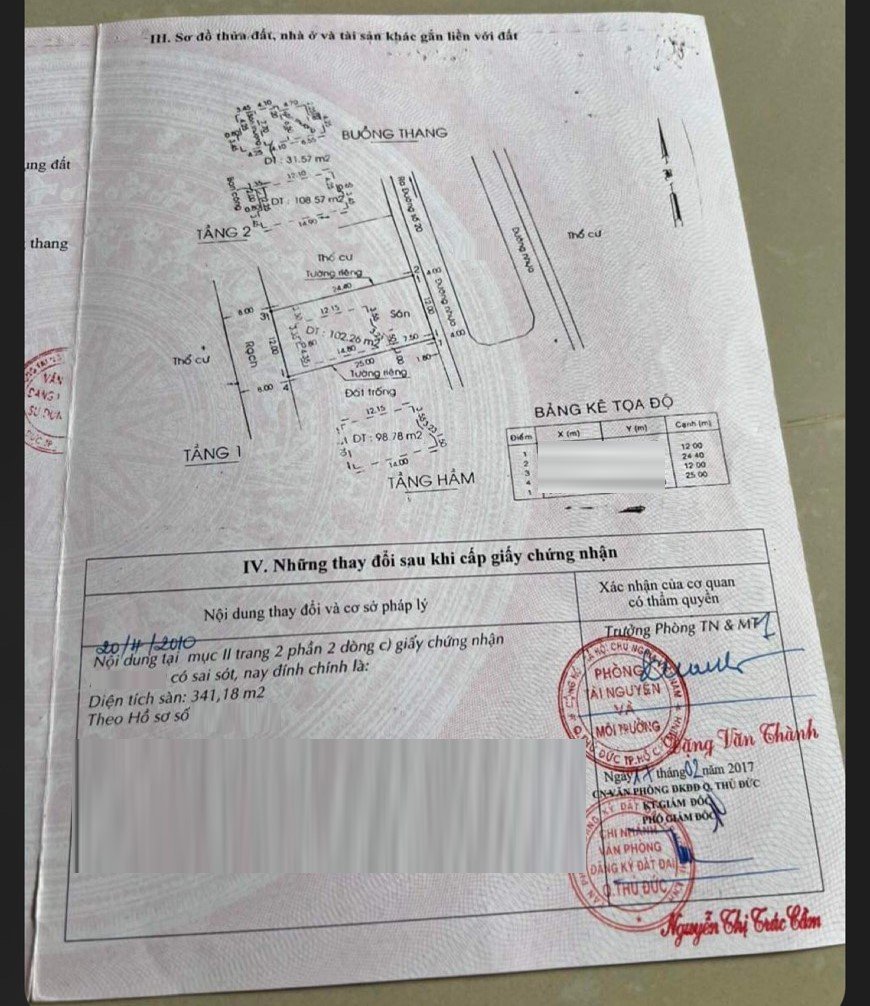 III. Sơ đồ thửa đất, nhà ở và tài sản khác gắn liền với đất
ụng đất
thang
BUỒNG THANG
DT : 31.57 m2
12.10
Ban công
DT : 108.57 m2
14.90
TẦNG 2
Ra Đường số 20
Đường nhựa
Thổ cư
Thổ cư
Tường riêng
24.40
2
4.00
6.00
31
12.15
3.50
Sân
12.00
Đường nhựa
Thổ cư
Rạch
12.00
DT : 102.26 m2
7.50
4.00
14.80
25.00
1.80
6.00
4
Tường riêng
Đất trống
12.15
DT : 98.78 m2
14.00
TẦNG 1
TẦNG HẦM
BẢNG KÊ TỌA ĐỘ
Điểm X (m) Y (m) Cạnh (m)
1 12.00
2 24.40
3 12.00
4 25.00
1
IV. Những thay đổi sau khi cấp giấy chứng nhận
Nội dung thay đổi và cơ sở pháp lý
Xác nhận của cơ quan
có thẩm quyền
20/4/2010
Nội dung tại mục II trang 2 phần 2 dòng c) giấy chứng nhận
có sai sót, nay đính chính là:
Diện tích sàn: 341,18 m2
Theo Hồ sơ số
Trưởng Phòng TN & MT
PHÒNG
TÀI NGUYÊN
VÀ
MÔI TRƯỜNG
Đặng Văn Thành
Ngày tháng 02 năm 2017
CN VĂN PHÒNG ĐKĐĐ Q. THỦ ĐỨC
KT.GIÁM ĐỐC
PHÓ GIÁM ĐỐC
CHI NHÁNH
VĂN PHÒNG
ĐĂNG KÝ ĐẤT ĐAI
Q.THỦ ĐỨC
Nguyễn Thị Trúc Cầm